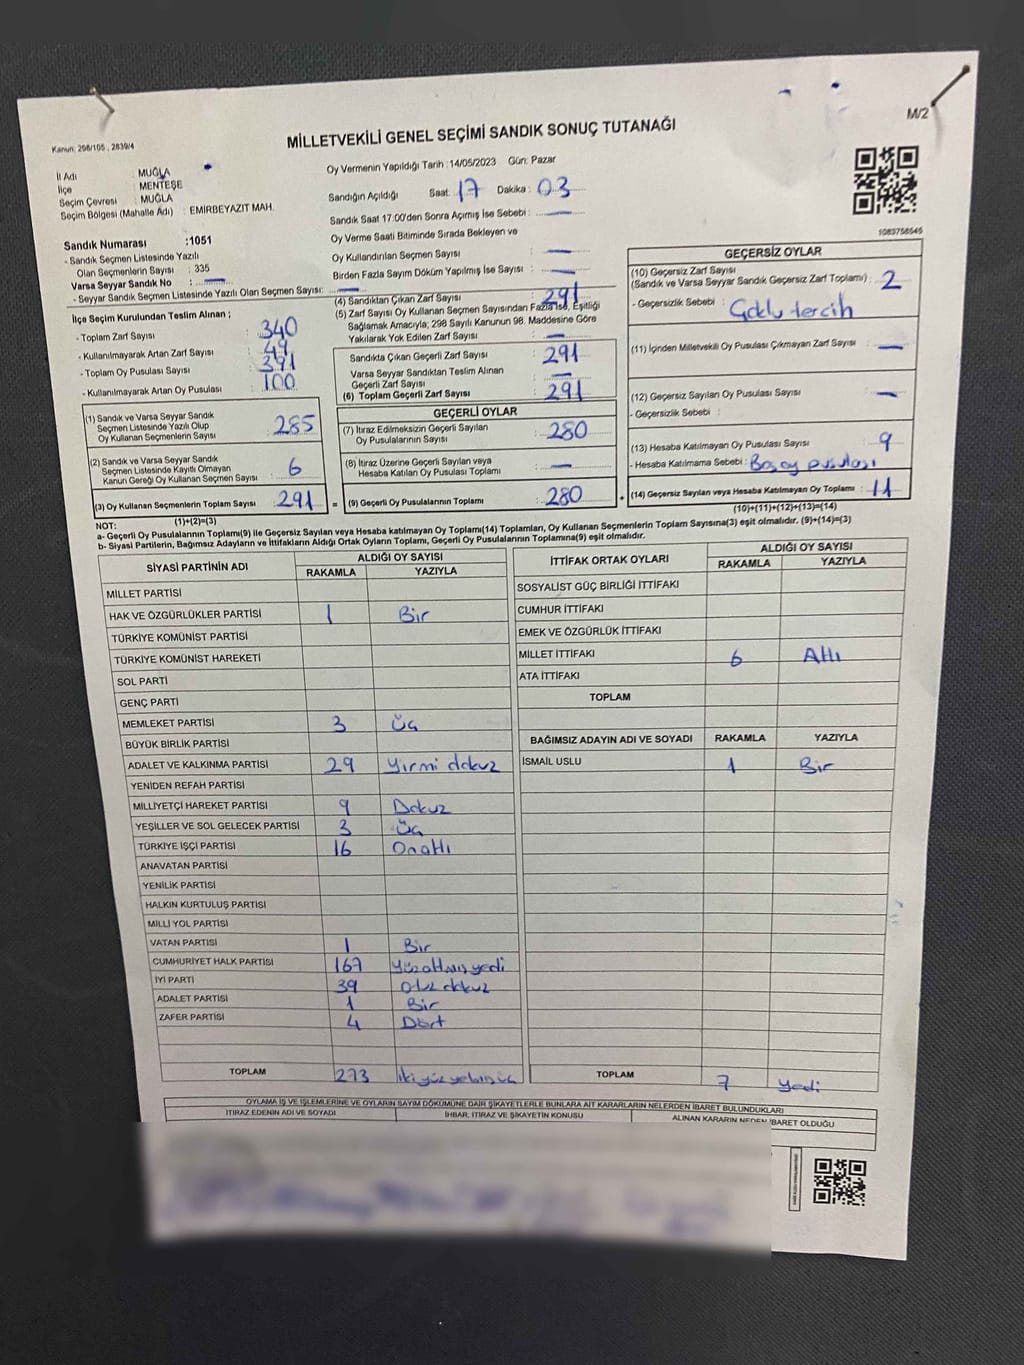 M/2
Kanun: 298/105 , 2839/4
MİLLETVEKİLİ GENEL SEÇİMİ SANDIK SONUÇ TUTANAĞI
İl Adı : MUĞLA
İlçe : MENTEŞE
Seçim Çevresi : MUĞLA
Seçim Bölgesi (Mahalle Adı) : EMİRBEYAZIT MAH.
Sandık Numarası :1051
- Sandık Seçmen Listesinde Yazılı
Olan Seçmenlerin Sayısı : 335
Varsa Seyyar Sandık No : —
- Seyyar Sandık Seçmen Listesinde Yazılı Olan Seçmen Sayısı: —
Oy Vermenin Yapıldığı Tarih :14/05/2023 Gün: Pazar
Sandığın Açıldığı Saat: 17 Dakika : 03
Sandık Saat 17:00'den Sonra Açımış İse Sebebi : —
Oy Verme Saati Bitiminde Sırada Bekleyen ve
Oy Kullandırılan Seçmen Sayısı —
Birden Fazla Sayım Döküm Yapılmış İse Sayısı : —
1083758545
İlçe Seçim Kurulundan Teslim Alınan ;
- Toplam Zarf Sayısı 340
- Kullanılmayarak Artan Zarf Sayısı 49
- Toplam Oy Pusulası Sayısı 391
- Kullanılmayarak Artan Oy Pusulası 100
(1) Sandık ve Varsa Seyyar Sandık
Seçmen Listesinde Yazılı Olup
Oy Kullanan Seçmenlerin Sayısı 285
(2) Sandık ve Varsa Seyyar Sandık
Seçmen Listesinde Kayıtlı Olmayan
Kanun Gereği Oy Kullanan Seçmen Sayısı : 6
(3) Oy Kullanan Seçmenlerin Toplam Sayısı 291
(1)+(2)=(3)
(4) Sandıktan Çıkan Zarf Sayısı 291
(5) Zarf Sayısı Oy Kullanan Seçmen Sayısından Fazla İse, Eşitliği
Sağlamak Amacıyla; 298 Sayılı Kanunun 98. Maddesine Göre
Yakılarak Yok Edilen Zarf Sayısı: —
Sandıkta Çıkan Geçerli Zarf Sayısı 291
Varsa Seyyar Sandıktan Teslim Alınan
Geçerli Zarf Sayısı —
(6) Toplam Geçerli Zarf Sayısı : 291
GEÇERLİ OYLAR
(7) İtiraz Edilmeksizin Geçerli Sayılan
Oy Pusulalarının Sayısı 280
(8) İtiraz Üzerine Geçerli Sayılan veya
Hesaba Katılan Oy Pusulası Toplamı —
= (9) Geçerli Oy Pusulalarının Toplamı 280 +
GEÇERSİZ OYLAR
(10) Geçersiz Zarf Sayısı
(Sandık ve Varsa Seyyar Sandık Geçersiz Zarf Toplamı) : 2
- Geçersizlik Sebebi : Çoklu tercih
(11) İçinden Milletvekili Oy Pusulası Çıkmayan Zarf Sayısı —
(12) Geçersiz Sayılan Oy Pusulası Sayısı : —
- Geçersizlik Sebebi :
(13) Hesaba Katılmayan Oy Pusulası Sayısı 9
- Hesaba Katılmama Sebebi : Boş oy pusulası
(14) Geçersiz Sayılan veya Hesaba Katılmayan Oy Toplamı : 11
(10)+(11)+(12)+(13)=(14)
NOT:
a- Geçerli Oy Pusulalarının Toplamı(9) ile Geçersiz Sayılan veya Hesaba katılmayan Oy Toplamı(14) Toplamları, Oy Kullanan Seçmenlerin Toplam Sayısına(3) eşit olmalıdır. (9)+(14)=(3)
b- Siyasi Partilerin, Bağımsız Adayların ve İttifakların Aldığı Ortak Oyların Toplamı, Geçerli Oy Pusulalarının Toplamına(9) eşit olmalıdır.
SİYASİ PARTİNİN ADI ALDIĞI OY SAYISI
RAKAMLA YAZIYLA
MİLLET PARTİSİ
HAK VE ÖZGÜRLÜKLER PARTİSİ 1 Bir
TÜRKİYE KOMÜNİST PARTİSİ
TÜRKİYE KOMÜNİST HAREKETİ
SOL PARTİ
GENÇ PARTİ
MEMLEKET PARTİSİ 3 Üç
BÜYÜK BİRLİK PARTİSİ
ADALET VE KALKINMA PARTİSİ 29 Yirmi dokuz
YENİDEN REFAH PARTİSİ
MİLLİYETÇİ HAREKET PARTİSİ 9 Dokuz
YEŞİLLER VE SOL GELECEK PARTİSİ 3 Üç
TÜRKİYE İŞÇİ PARTİSİ 16 Onaltı
ANAVATAN PARTİSİ
YENİLİK PARTİSİ
HALKIN KURTULUŞ PARTİSİ
MİLLİ YOL PARTİSİ
VATAN PARTİSİ 1 Bir
CUMHURİYET HALK PARTİSİ 167 Yüzaltmış yedi
İYİ PARTİ 39 Otuz dokuz
ADALET PARTİSİ 1 Bir
ZAFER PARTİSİ 4 Dört
TOPLAM 273 İkiyüz yetmiş üç
İTTİFAK ORTAK OYLARI ALDIĞI OY SAYISI
RAKAMLA YAZIYLA
SOSYALİST GÜÇ BİRLİĞİ İTTİFAKI
CUMHUR İTTİFAKI
EMEK VE ÖZGÜRLÜK İTTİFAKI
MİLLET İTTİFAKI 6 Altı
ATA İTTİFAKI
TOPLAM
BAĞIMSIZ ADAYIN ADI VE SOYADI RAKAMLA YAZIYLA
İSMAİL USLU 1 Bir
TOPLAM 7 Yedi
OYLAMA İŞ VE İŞLEMLERİNE VE OYLARIN SAYIM DÖKÜMÜNE DAİR ŞİKAYETLERLE BUNLARA AİT KARARLARIN NELERDEN İBARET BULUNDUKLARI
İTİRAZ EDENİN ADI VE SOYADI İHBAR, İTİRAZ VE ŞİKAYETİN KONUSU ALINAN KARARIN NEDEN İBARET OLDUĞU